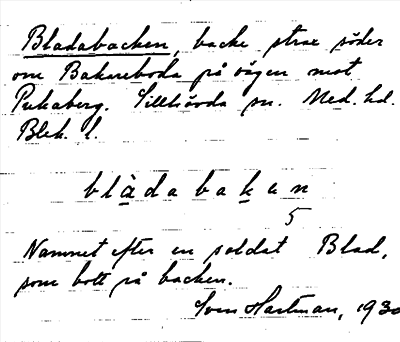 Bladabacken, backe strax söder
om Bakareboda på vägen mot
Pukaberg. Sillhövda sn. Med. hd.
Blek. l.
blàdabakan
5
Namnet efter en soldat Blad,
som bott på backen.
Sven Hartman, 193